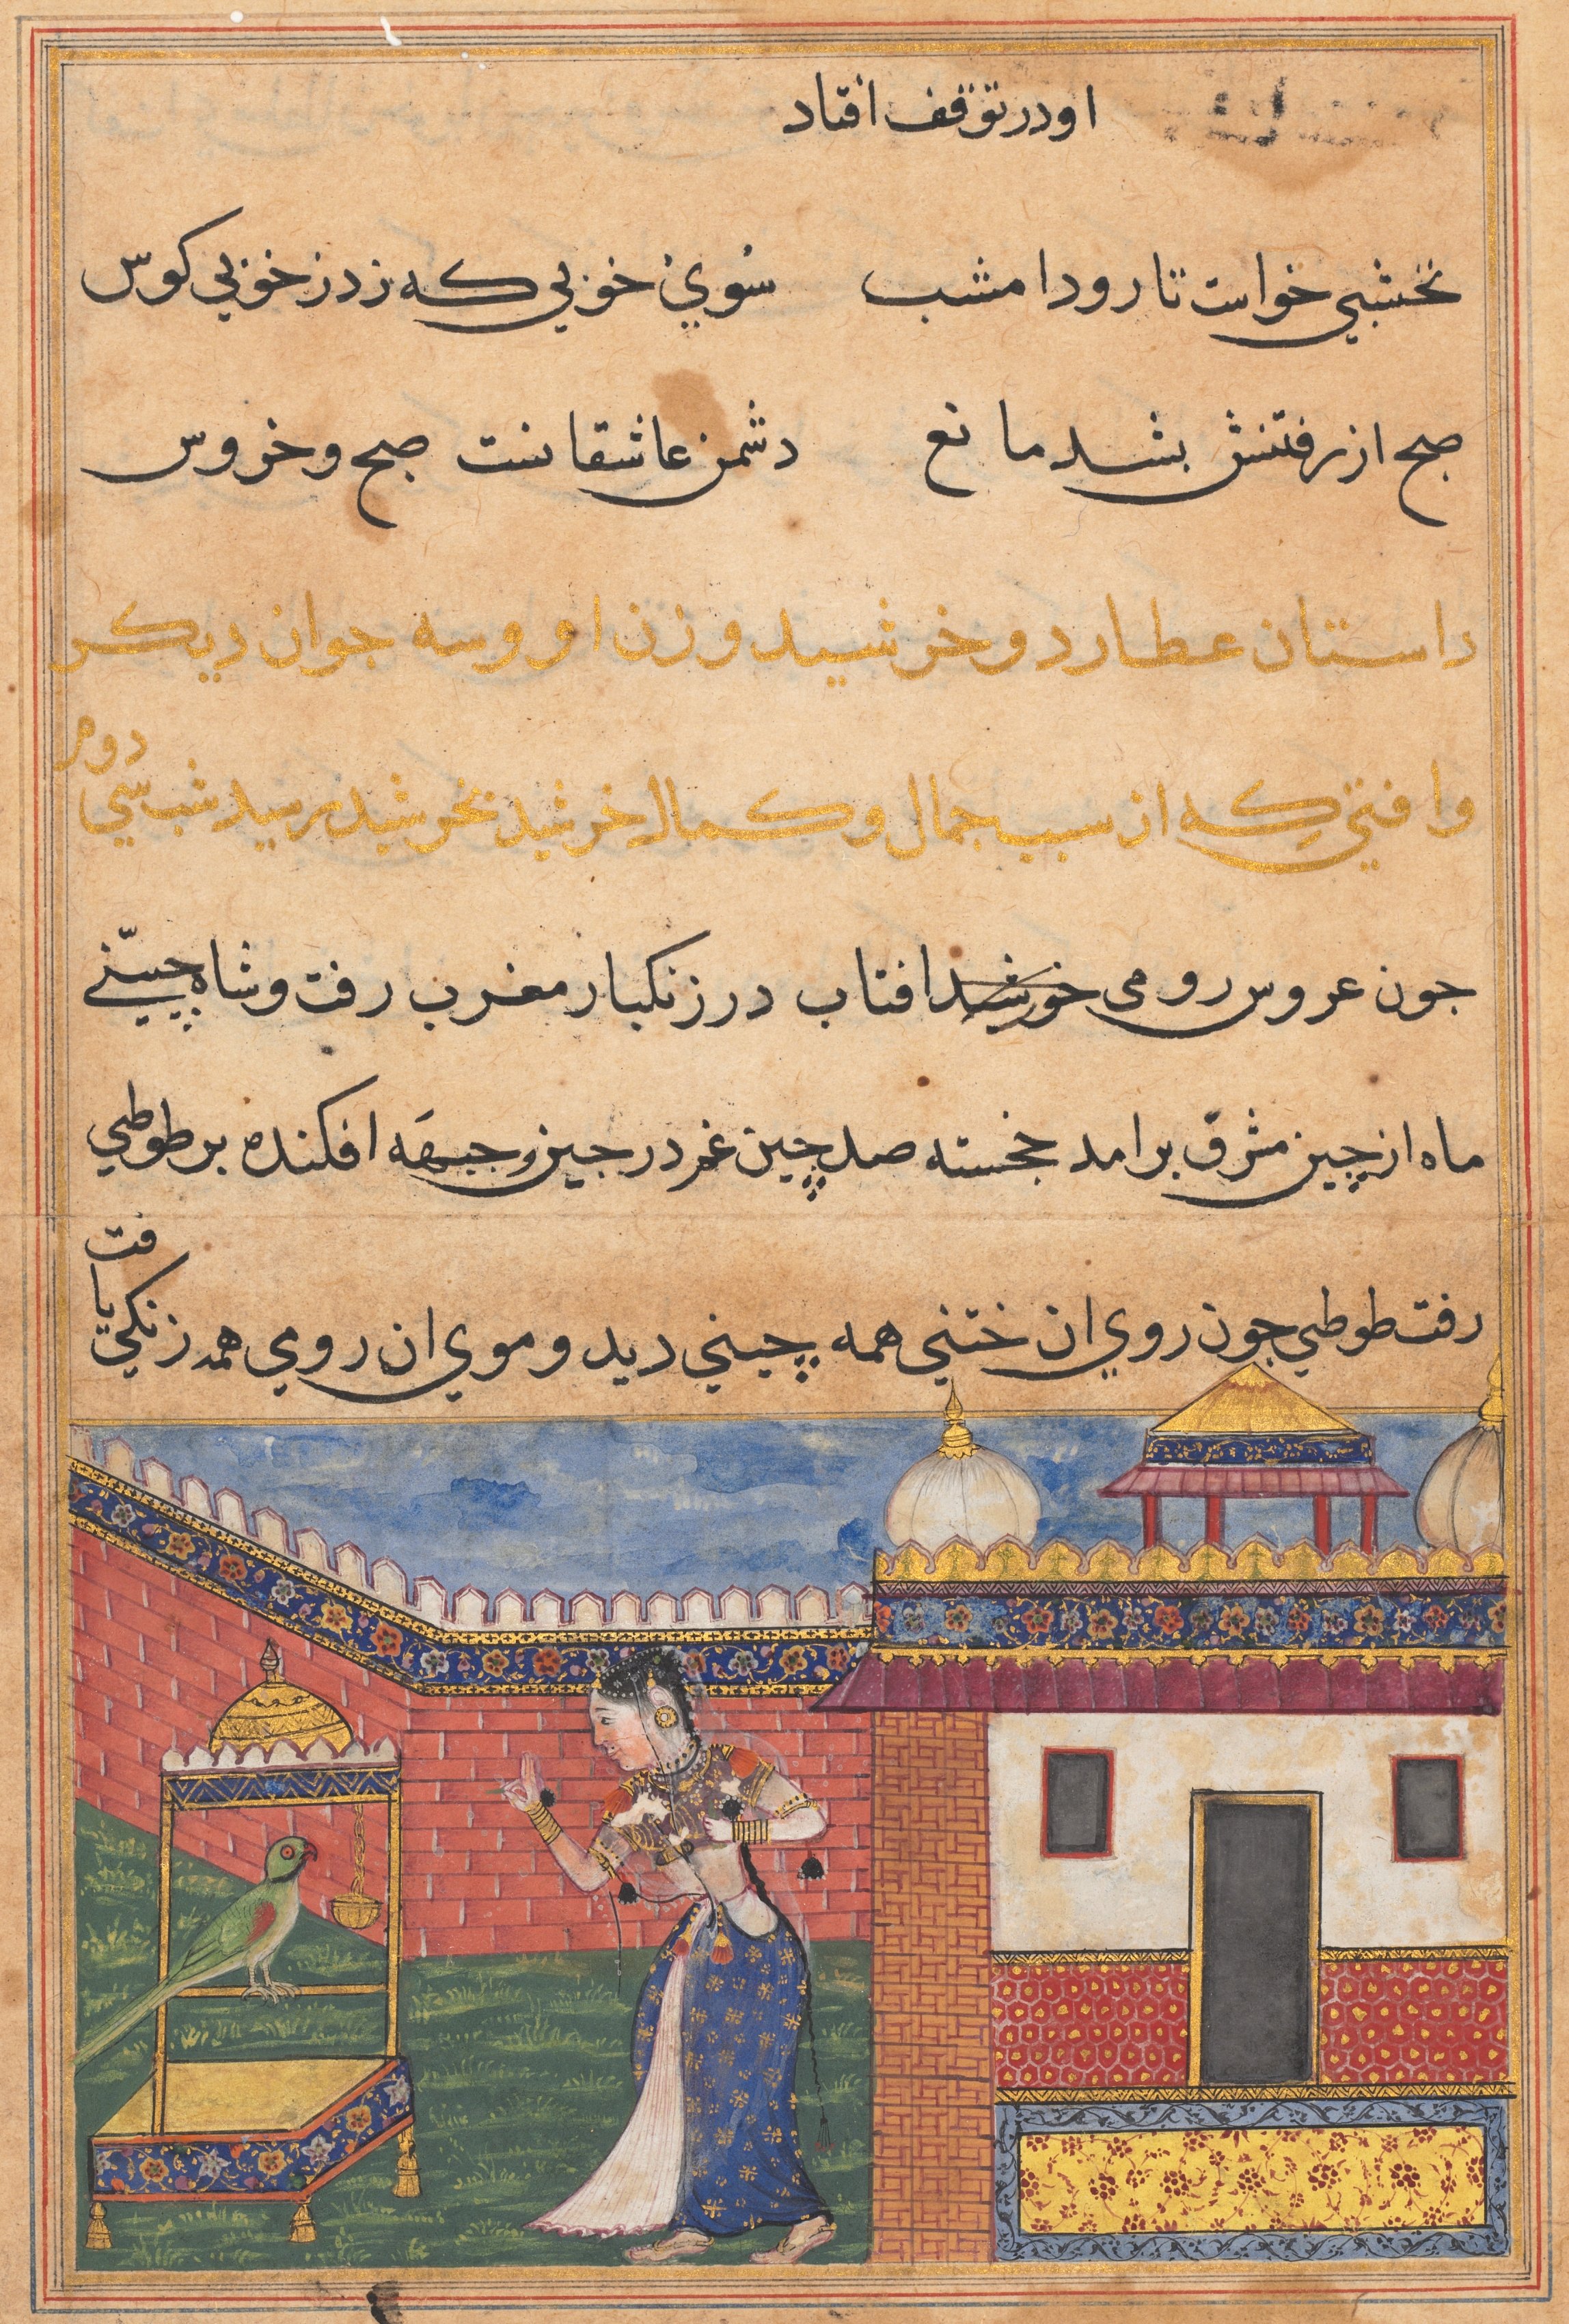 او در توقف افتاد
نخشبي خواست تا رود امشب سوي خوبي كه زد ز خوبي كوس
صبح از رفتنش بشد مانع دشمن عاشقانست صبح و خروس
داستان عطارد و خرشيد و زن او و سه جوان ديكر
وافتي كه از سبب جمال و كمال خرشيد بخرشيد رسيد شب سي دوم
جون عروس رومی خورشيد افتاب در زنكبار مغرب رفت و شاه چيني
ماه از چين مشرق برامد خجسته صد چين غم در جين و جبهه افكنده بر طوطي
رفت طوطي جون روي ان ختني همه چيني ديد و موي ان رومي همه زنكي يافت